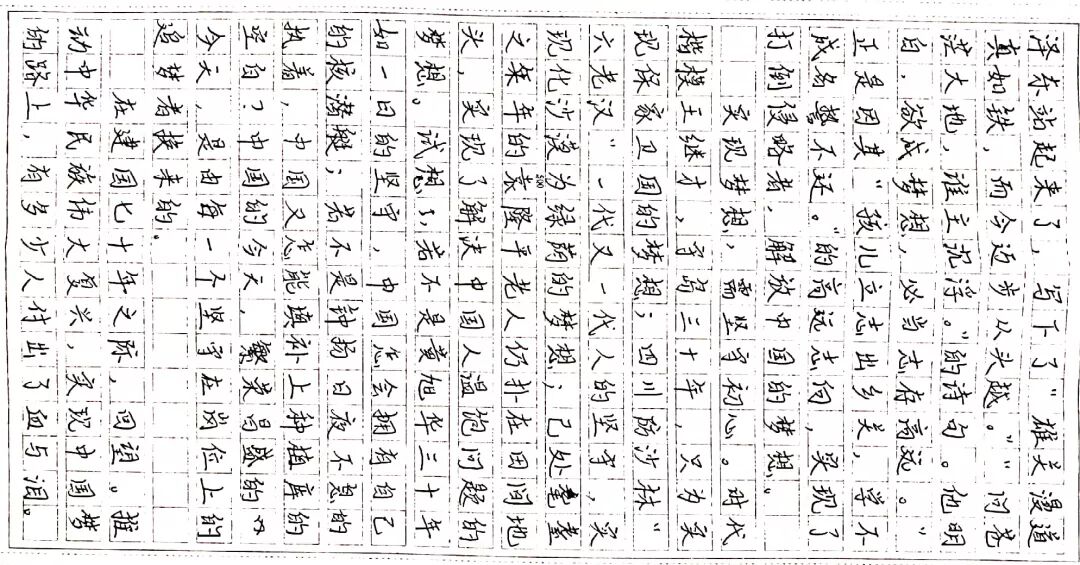 泽东站起来了，写下了“雄关漫道
真如铁，而今迈步从头越。”“问苍
茫大地，谁主沉浮。”的诗句。他明
白，欲成梦想，必当志存高远。”
正是因其“孩儿立志出乡关，学不
成名誓不还。”的高远志向，实现了
打倒侵略者，解放中国的梦想。
实现梦想，需坚守初心。时代
楷模王继才，守岛三十年，只为实
现保家卫国的梦想；四川防沙林“
六老汉”一代又一代人的坚守，实
现化沙漠为绿荫的梦想；已处耄耋
之年年的袁隆平老人仍扑在田间地
500
头，实现了解决中国人温饱问题的
梦想。试想，若不是黄旭华三十年
如一日的坚守，中国怎会拥有自己
的核潜艇；若不是钟扬日夜不息的
执着，中国又怎能填补上种植库的
空白？中国的今天，繁荣昌盛的
今天，是由每一个坚守在岗位上的
追梦者接来的。
在建国七十年之际，回望。推
动中华民族伟大复兴，实现中国梦
的路上，有多少人付出了血与泪。